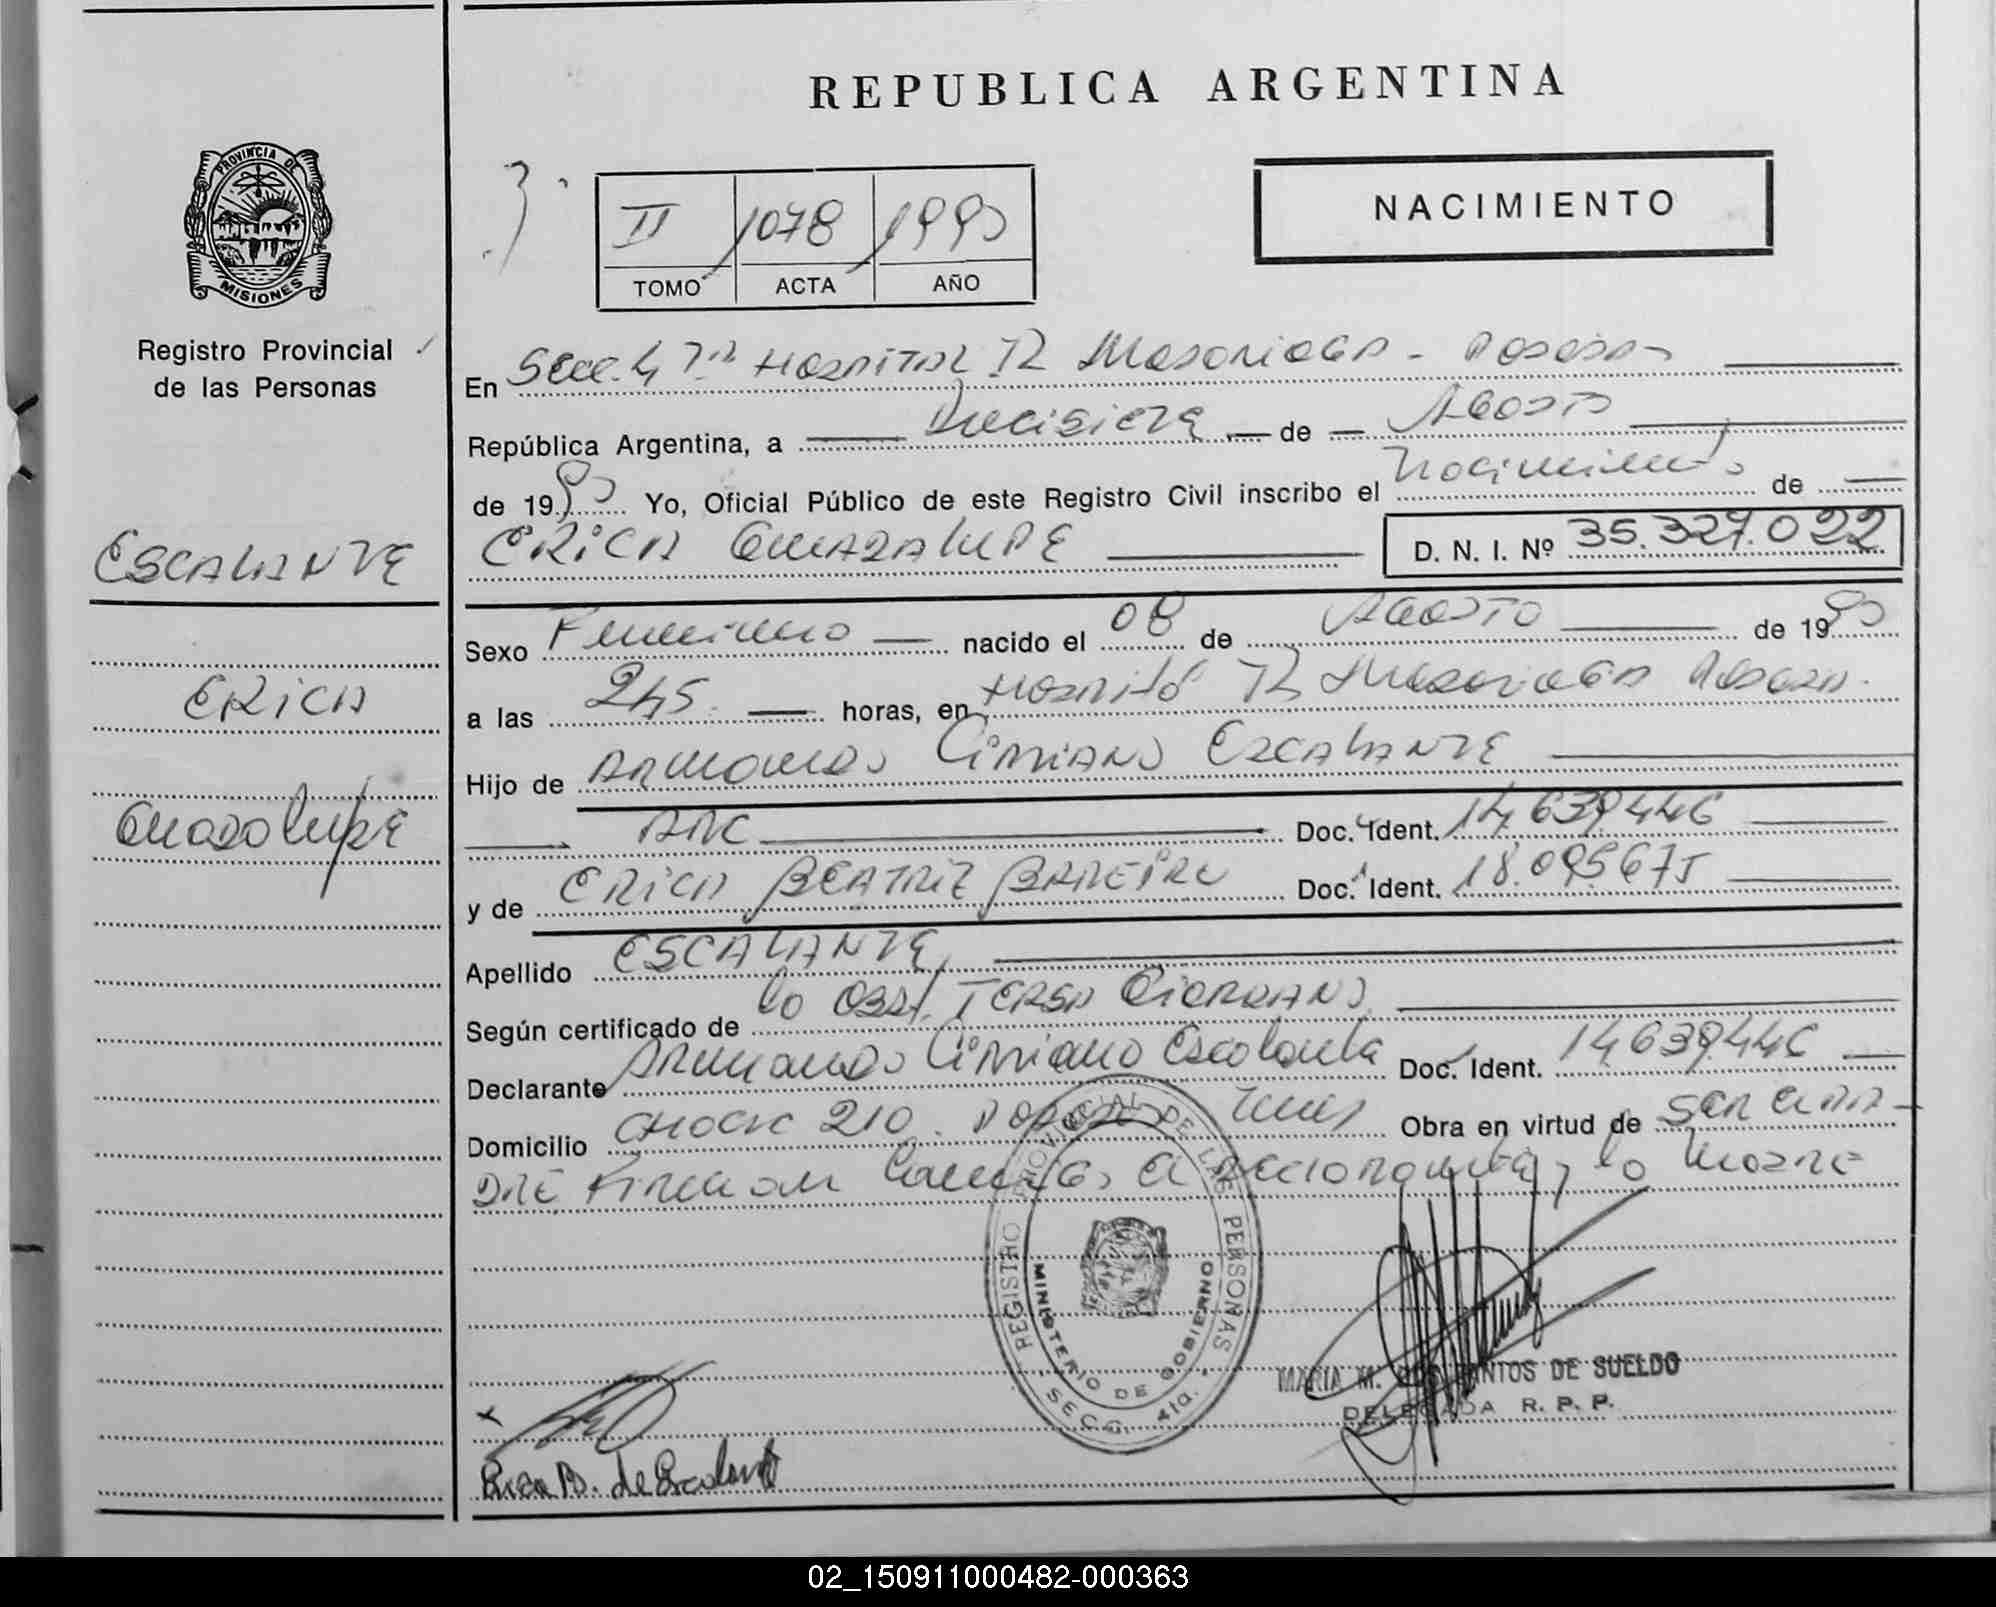 REPUBLICA ARGENTINA
PROVINCIA DE
MISIONES
Registro Provincial
de las Personas
II 1078 1990
TOMO ACTA AÑO
NACIMIENTO
En Secc. 4ta Hospital R Madariaga - Posadas
República Argentina, a Diecisiete de Agosto
de 1990 Yo, Oficial Público de este Registro Civil inscribo el nacimiento de
ESCALANTE
ERICA GUADALUPE
D. N. I. Nº 35.327.022
Sexo Femenino nacido el 08 de Agosto de 1990
ERICA
a las 245 horas, en Hospital R Madariaga Posadas
Hijo de Armando Cipriano ESCALANTE
Guadalupe
ARG Doc. Ident. 14639446
y de ERICA BEATRIZ BAREIRO Doc. Ident. 18.095675
Apellido ESCALANTE
Según certificado de la Obst. TERESA GIORDANO
Declarante Armando Cipriano Escalante Doc. Ident. 14639446
Domicilio 210 Posadas Mnes Obra en virtud de SER EL PA-
DRE Firman el declarante y la Madre
REGISTRO PROVINCIAL DE LAS PERSONAS
MINISTERIO DE GOBIERNO
SECC. 4ta.
MARIA M. DOS SANTOS DE SUELDO
DELEGADA R. P. P.
Erica B. de Escalante
02_150911000482-000363